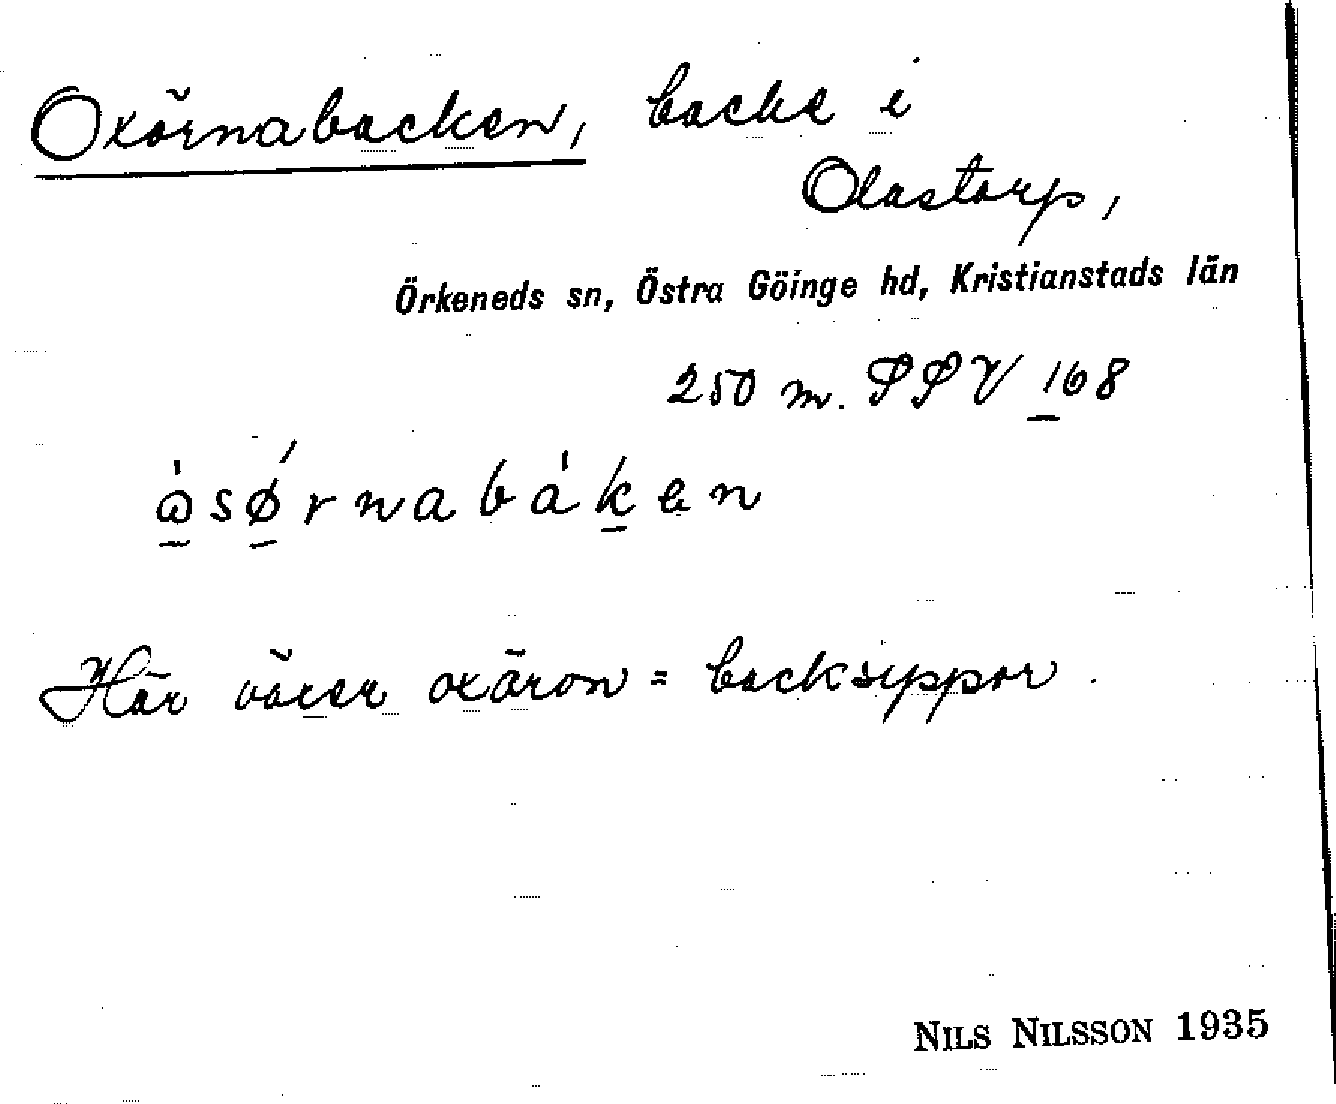 Oxörnabacken, backe i
Olastorp,
Örkeneds sn, Östra Göinge hd, Kristianstads län
250 m. SSV 168
Här växer oxäron = backsippor.
NILS NILSSON 1935